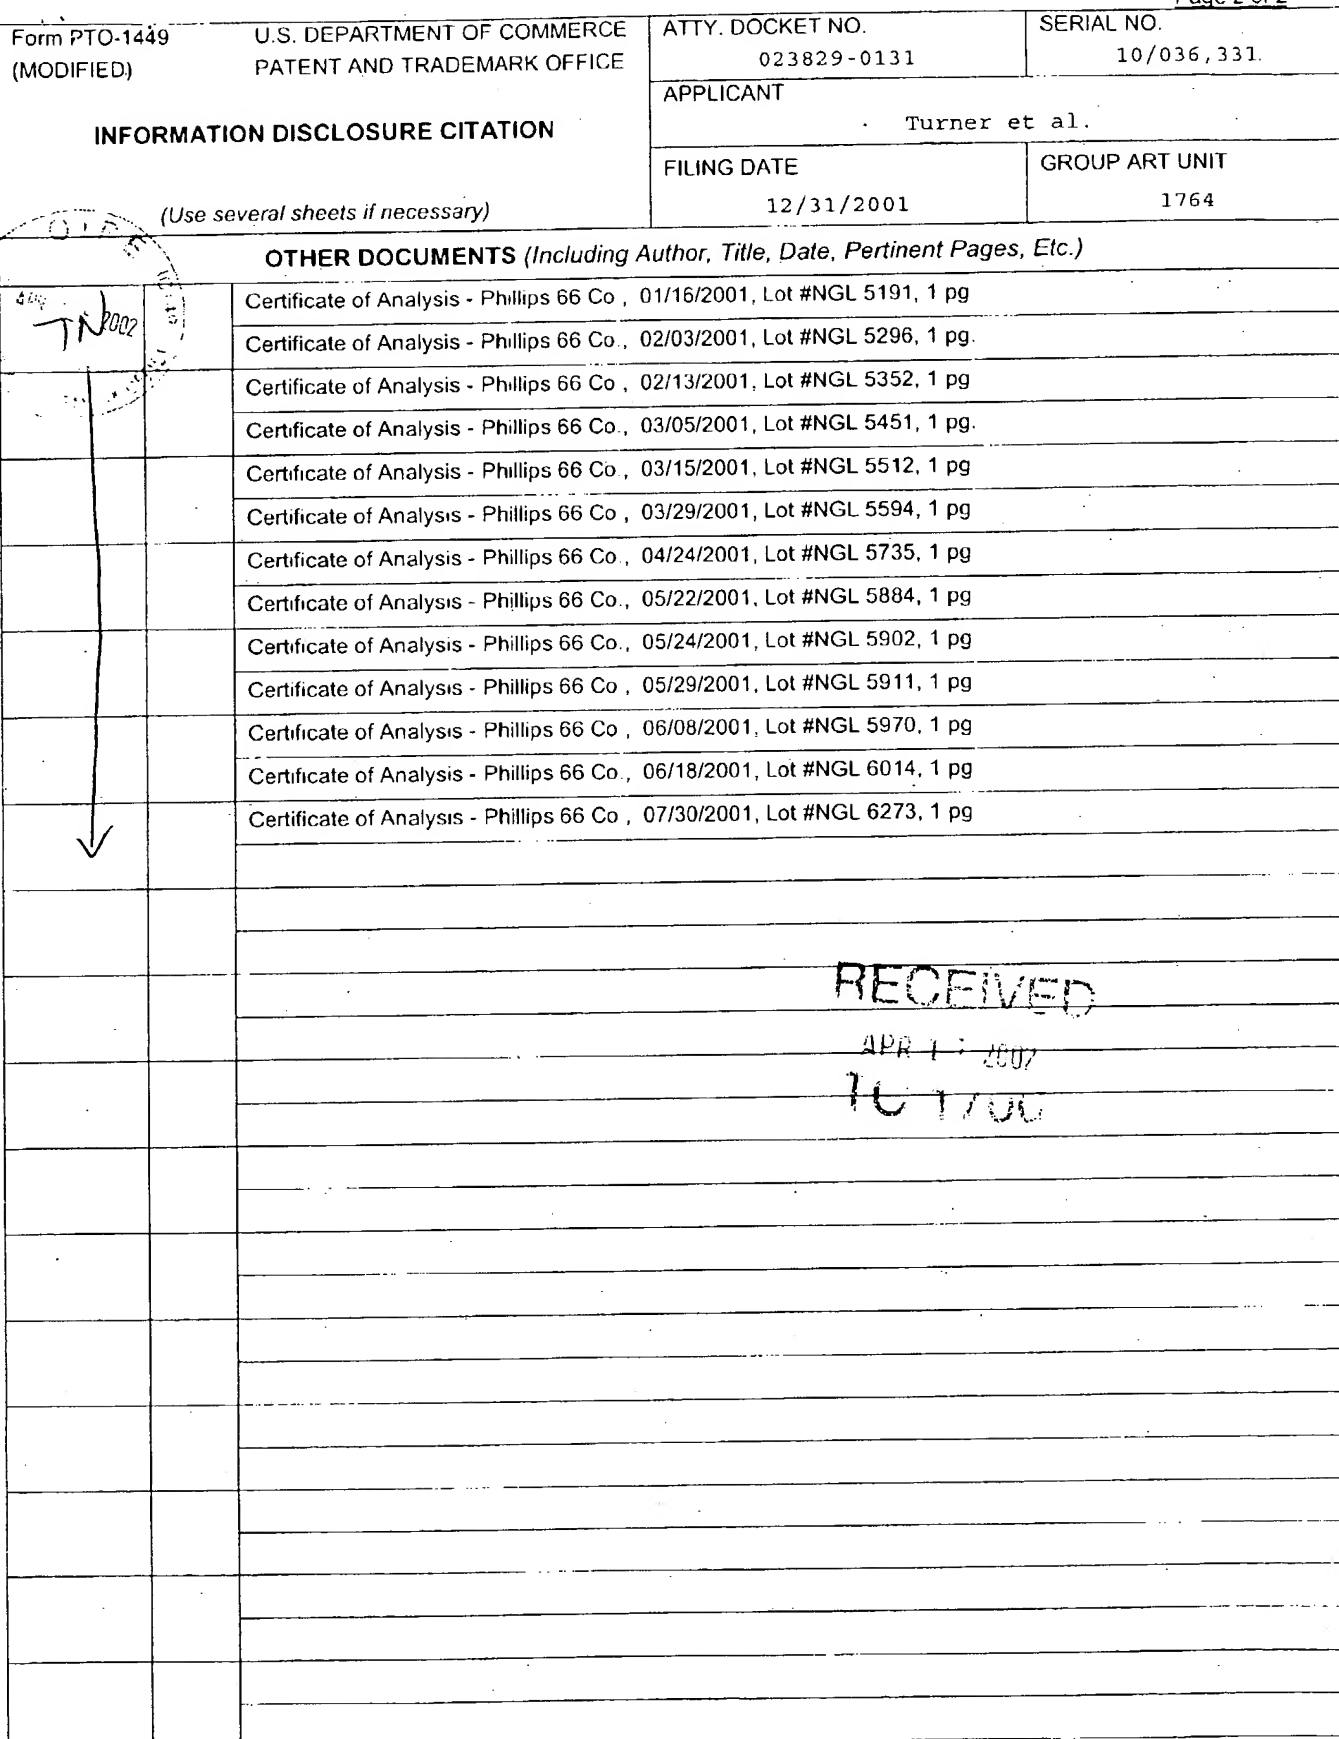 Page 2 of 2
Form PTO-1449 U.S. DEPARTMENT OF COMMERCE
(MODIFIED) PATENT AND TRADEMARK OFFICE
INFORMATION DISCLOSURE CITATION
(Use several sheets if necessary)
ATTY. DOCKET NO.
023829-0131
SERIAL NO.
10/036,331.
APPLICANT
Turner et al.
FILING DATE
12/31/2001
GROUP ART UNIT
1764
OIPE
2002
TN
OTHER DOCUMENTS (Including Author, Title, Date, Pertinent Pages, Etc.)
Certificate of Analysis - Phillips 66 Co , 01/16/2001, Lot #NGL 5191, 1 pg
Certificate of Analysis - Phillips 66 Co., 02/03/2001, Lot #NGL 5296, 1 pg.
Certificate of Analysis - Phillips 66 Co , 02/13/2001, Lot #NGL 5352, 1 pg
Certificate of Analysis - Phillips 66 Co., 03/05/2001, Lot #NGL 5451, 1 pg.
Certificate of Analysis - Phillips 66 Co., 03/15/2001, Lot #NGL 5512, 1 pg
Certificate of Analysis - Phillips 66 Co , 03/29/2001, Lot #NGL 5594, 1 pg
Certificate of Analysis - Phillips 66 Co., 04/24/2001, Lot #NGL 5735, 1 pg
Certificate of Analysis - Phillips 66 Co., 05/22/2001, Lot #NGL 5884, 1 pg
Certificate of Analysis - Phillips 66 Co., 05/24/2001, Lot #NGL 5902, 1 pg
Certificate of Analysis - Phillips 66 Co , 05/29/2001, Lot #NGL 5911, 1 pg
Certificate of Analysis - Phillips 66 Co , 06/08/2001, Lot #NGL 5970, 1 pg
Certificate of Analysis - Phillips 66 Co., 06/18/2001, Lot #NGL 6014, 1 pg
Certificate of Analysis - Phillips 66 Co , 07/30/2001, Lot #NGL 6273, 1 pg
RECEIVED
APR 2002
TC 1700